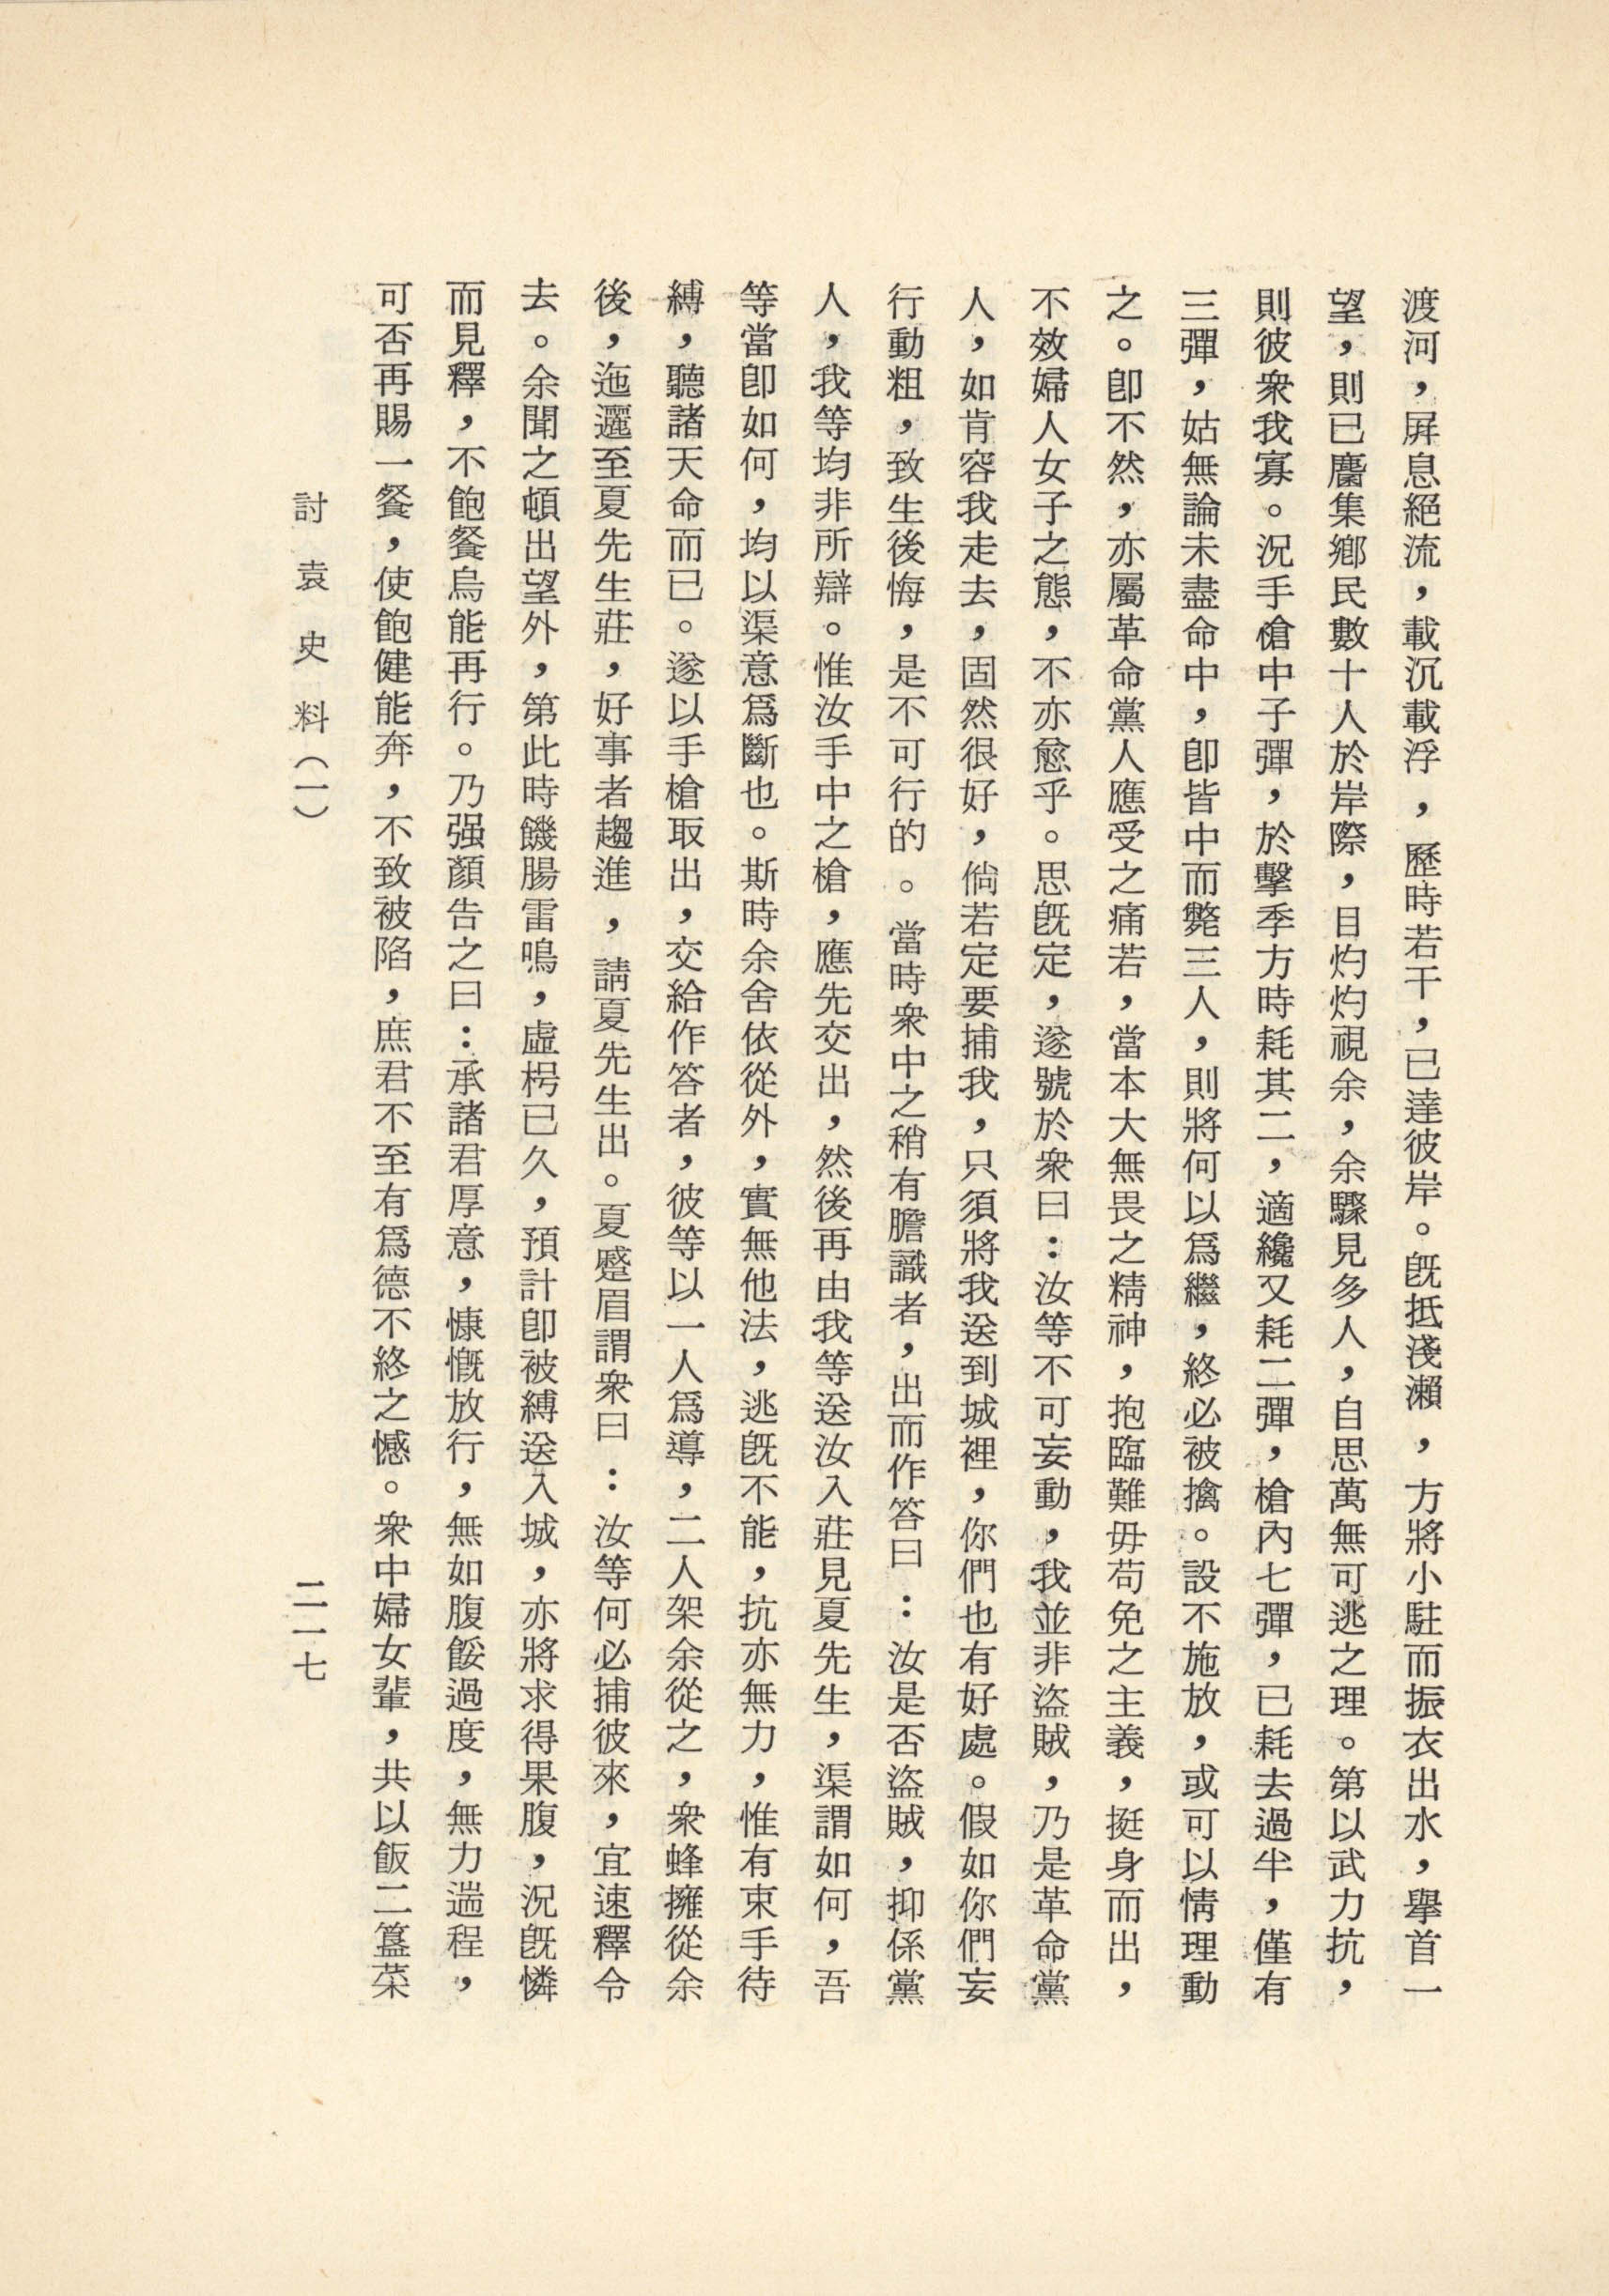 渡河，屛息絕流，載沉載浮，歷時若干，已達彼岸。旣抵淺瀨，方將小駐而振衣出水，擧首一
望，則已麕集鄕民數十人於岸際，目灼灼視余，余驟見多人，自思萬無可逃之理。第以武力抗，
則彼衆我寡。況手槍中子彈，於擊季方時耗其二，適纔又耗二彈，槍內七彈，已耗去過半，僅有
三彈，姑無論未盡命中，卽皆中而斃三人，則將何以爲繼，終必被擒。設不施放，或可以情理動
之。卽不然，亦屬革命黨人應受之痛若，當本大無畏之精神，抱臨難毋苟免之主義，挺身而出，
不效婦人女子之態，不亦愈乎。思旣定，遂號於衆曰：汝等不可妄動，我並非盜賊，乃是革命黨
人，如肯容我走去，固然很好，倘若定要捕我，只須將我送到城裡，你們也有好處。假如你們妄
行動粗，致生後悔，是不可行的。當時衆中之稍有膽識者，出而作答曰：汝是否盜賊，抑係黨
人，我等均非所辯。惟汝手中之槍，應先交出，然後再由我等送汝入莊見夏先生，渠謂如何，吾
等當卽如何，均以渠意爲斷也。斯時余舍依從外，實無他法，逃旣不能，抗亦無力，惟有束手待
縛，聽諸天命而已。遂以手槍取出，交給作答者，彼等以一人爲導，二人架余從之，衆蜂擁從余
後，迤邐至夏先生莊，好事者趨進，請夏先生出。夏蹙眉謂衆曰：汝等何必捕彼來，宜速釋令
去。余聞之頓出望外，第此時饑腸雷鳴，虛枵已久，預計卽被縛送入城，亦將求得果腹，況旣憐
而見釋，不飽餐烏能再行。乃强顏告之曰：承諸君厚意，慷慨放行，無如腹餒過度，無力遄程，
可否再賜一餐，使飽健能奔，不致被陷，庶君不至有爲德不終之憾。衆中婦女輩，共以飯二簋菜
討袁史料（一）
二一七